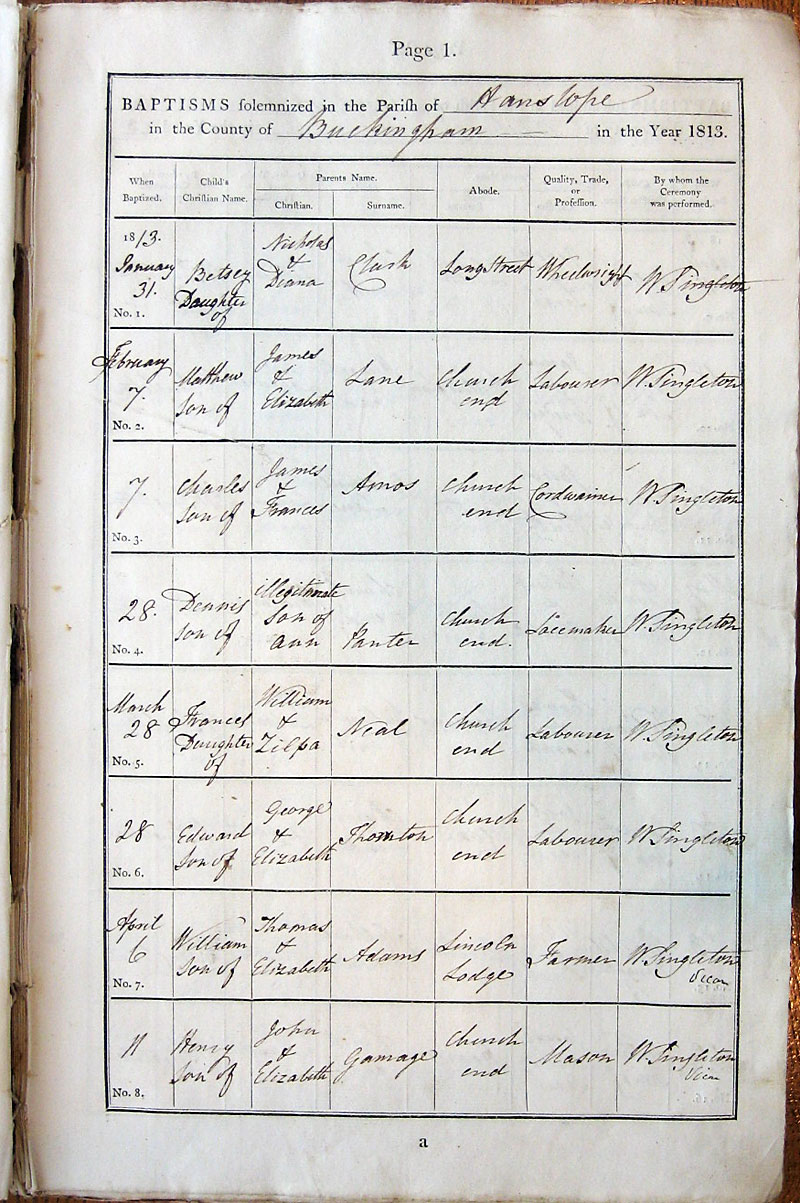 Page 1.
BAPTISMS solemnized in the Parish of Hanslope
in the County of Buckingham in the Year 1813.
When Baptized. Child's Christian Name. Parents Name. Christian. Surname. Abode. Quality, Trade, or Profession. By whom the Ceremony was performed.
1813. January 31. No. 1. Betsey Daughter of Nicholas & Diana Clark Longstreet Wheelwright W Singleton
February 7. No. 2. Matthew Son of James & Elizabeth Lane Church end Labourer W. Singleton
7. No. 3. Charles Son of James & Frances Amos Church end Cordwainer W Singleton
28. No. 4. Dennis Son of illegitimate Son of Ann Panter Church end. Lacemaker W. Singleton
March 28 No. 5. Frances Daughter of William & Zilpa Neal Church end Labourer W. Singleton
28 No. 6. Edward Son of George & Elizabeth Thornton Church end Labourer W. Singleton
April 6 No. 7. William Son of Thomas & Elizabeth Adams Lincoln Lodge Farmer W. Singleton Vicar
11 No. 8. Henry Son of John & Elizabeth Gamage Church end Mason W. Singleton Vicar
a